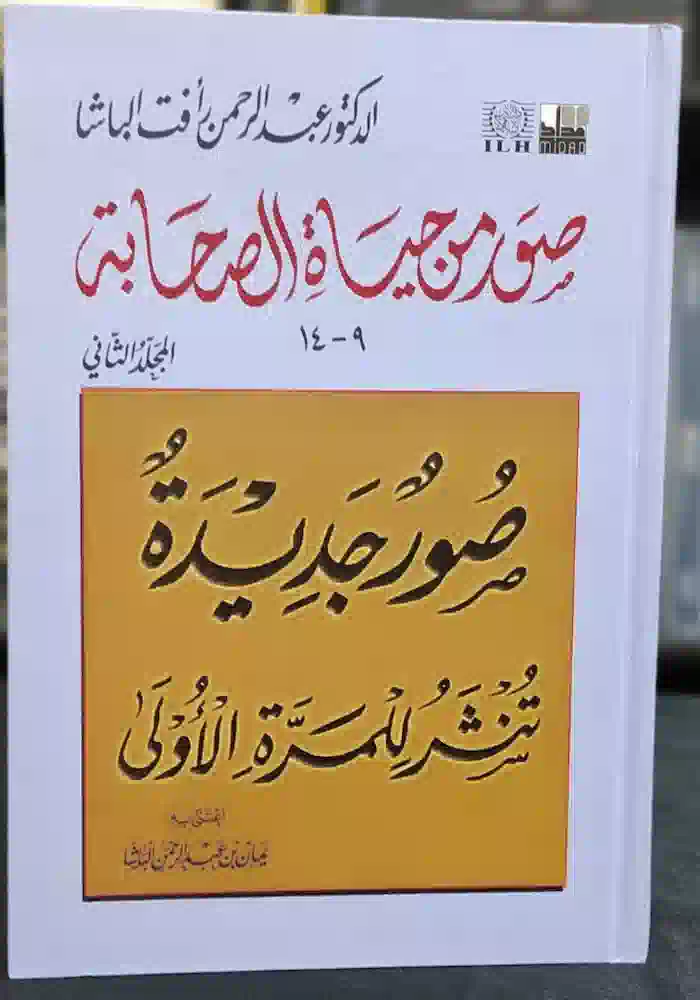 الدكتور عبد الرحمن رأفت الباشا
ILH
مداد
MIDAD
صور من حياة الصحابة
٩ - ١٤
المجلد الثاني
صُوَرٌ جَدِيدَةٌ
تُنْشَرُ لِلْمَرَّةِ الْأُوْلَىٰ
اعتنى به
يمان بن عبد الرحمن الباشا